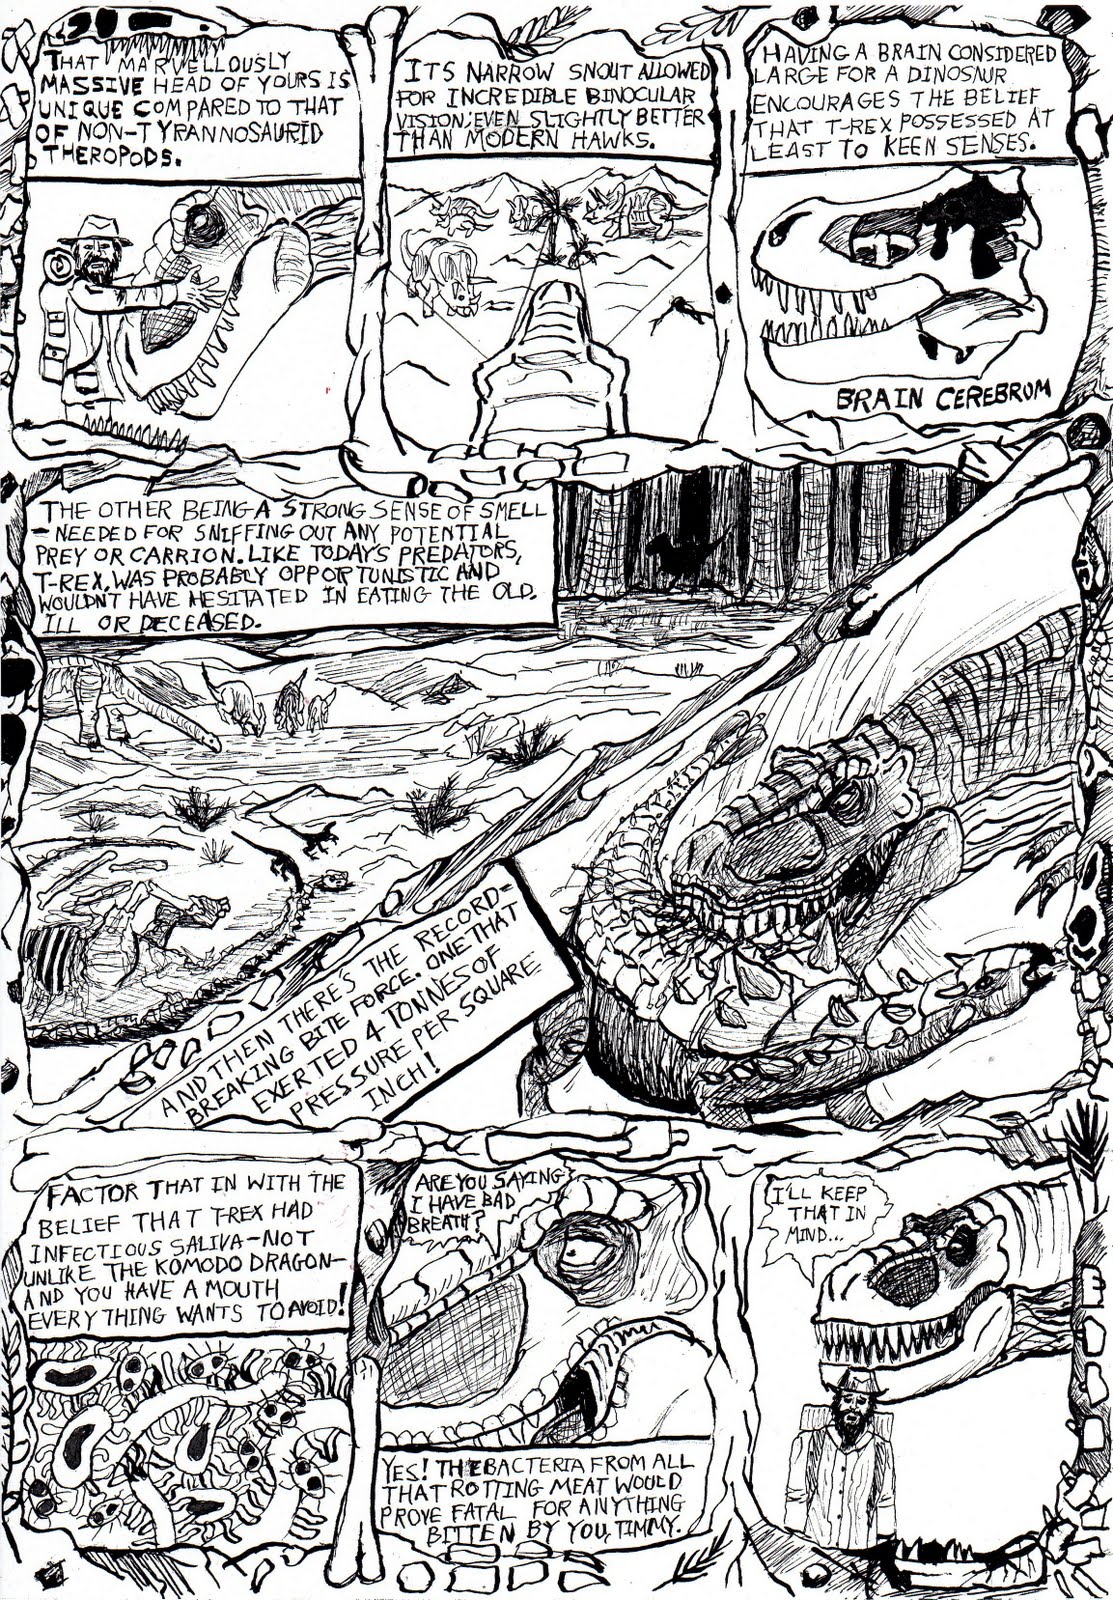 THAT MARVELLOUSLY
MASSIVE HEAD OF YOURS IS
UNIQUE COMPARED TO THAT
OF NON-TYRANNOSAURID
THEROPODS.
ITS NARROW SNOUT ALLOWED
FOR INCREDIBLE BINOCULAR
VISION; EVEN SLIGHTLY BETTER
THAN MODERN HAWKS.
HAVING A BRAIN CONSIDERED
LARGE FOR A DINOSAUR
ENCOURAGES THE BELIEF
THAT T-REX POSSESSED AT
LEAST TO KEEN SENSES.
BRAIN CEREBROM
THE OTHER BEING A STRONG SENSE OF SMELL
- NEEDED FOR SNIFFING OUT ANY POTENTIAL
PREY OR CARRION. LIKE TODAY'S PREDATORS,
T-REX, WAS PROBABLY OPPORTUNISTIC AND
WOULDN'T HAVE HESITATED IN EATING THE OLD.
ILL OR DECEASED.
AND THEN THERE'S THE RECORD-
BREAKING BITE FORCE. ONE THAT
EXERTED 4 TONNES OF
PRESSURE PER SQUARE
INCH!
FACTOR THAT IN WITH THE
BELIEF THAT T-REX HAD
INFECTIOUS SALIVA-NOT
UNLIKE THE KOMODO DRAGON-
AND YOU HAVE A MOUTH
EVERYTHING WANTS TO AVOID!
ARE YOU SAYING
I HAVE BAD
BREATH?
YES! THE BACTERIA FROM ALL
THAT ROTTING MEAT WOULD
PROVE FATAL FOR ANYTHING
BITTEN BY YOU, TIMMY.
I'LL KEEP
THAT IN
MIND...